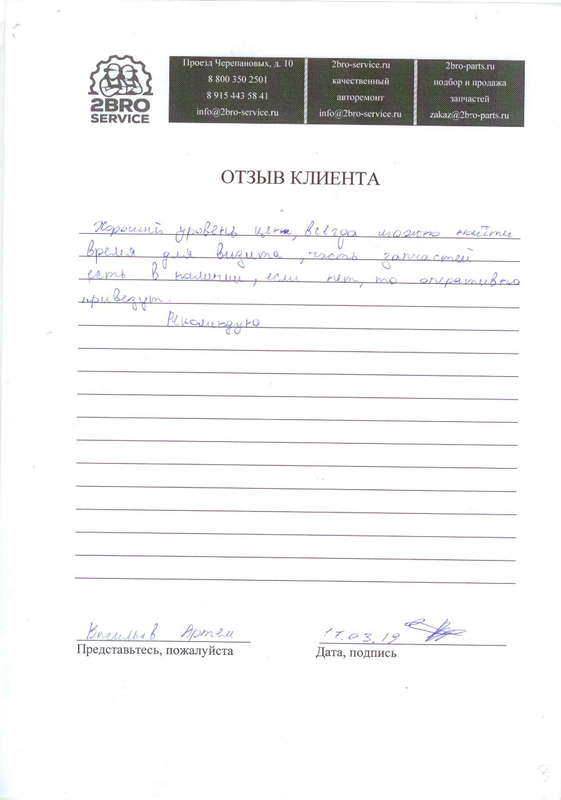 2BRO
SERVICE
Проезд Черепановых, д. 10
8 800 350 2501
8 915 443 58 41
info@2bro-service.ru
2bro-service.ru
качественный
авторемонт
info@2bro-service.ru
2bro-parts.ru
подбор и продажа
запчастей
zakaz@2bro-parts.ru
ОТЗЫВ КЛИЕНТА
Хороший уровень цен, всегда можно найти
время для визита, часть запчастей
есть в наличии, если нет, то оперативно
привезут.
Рекомендую
Васильев Артем
17.03.19
Представьтесь, пожалуйста
Дата, подпись